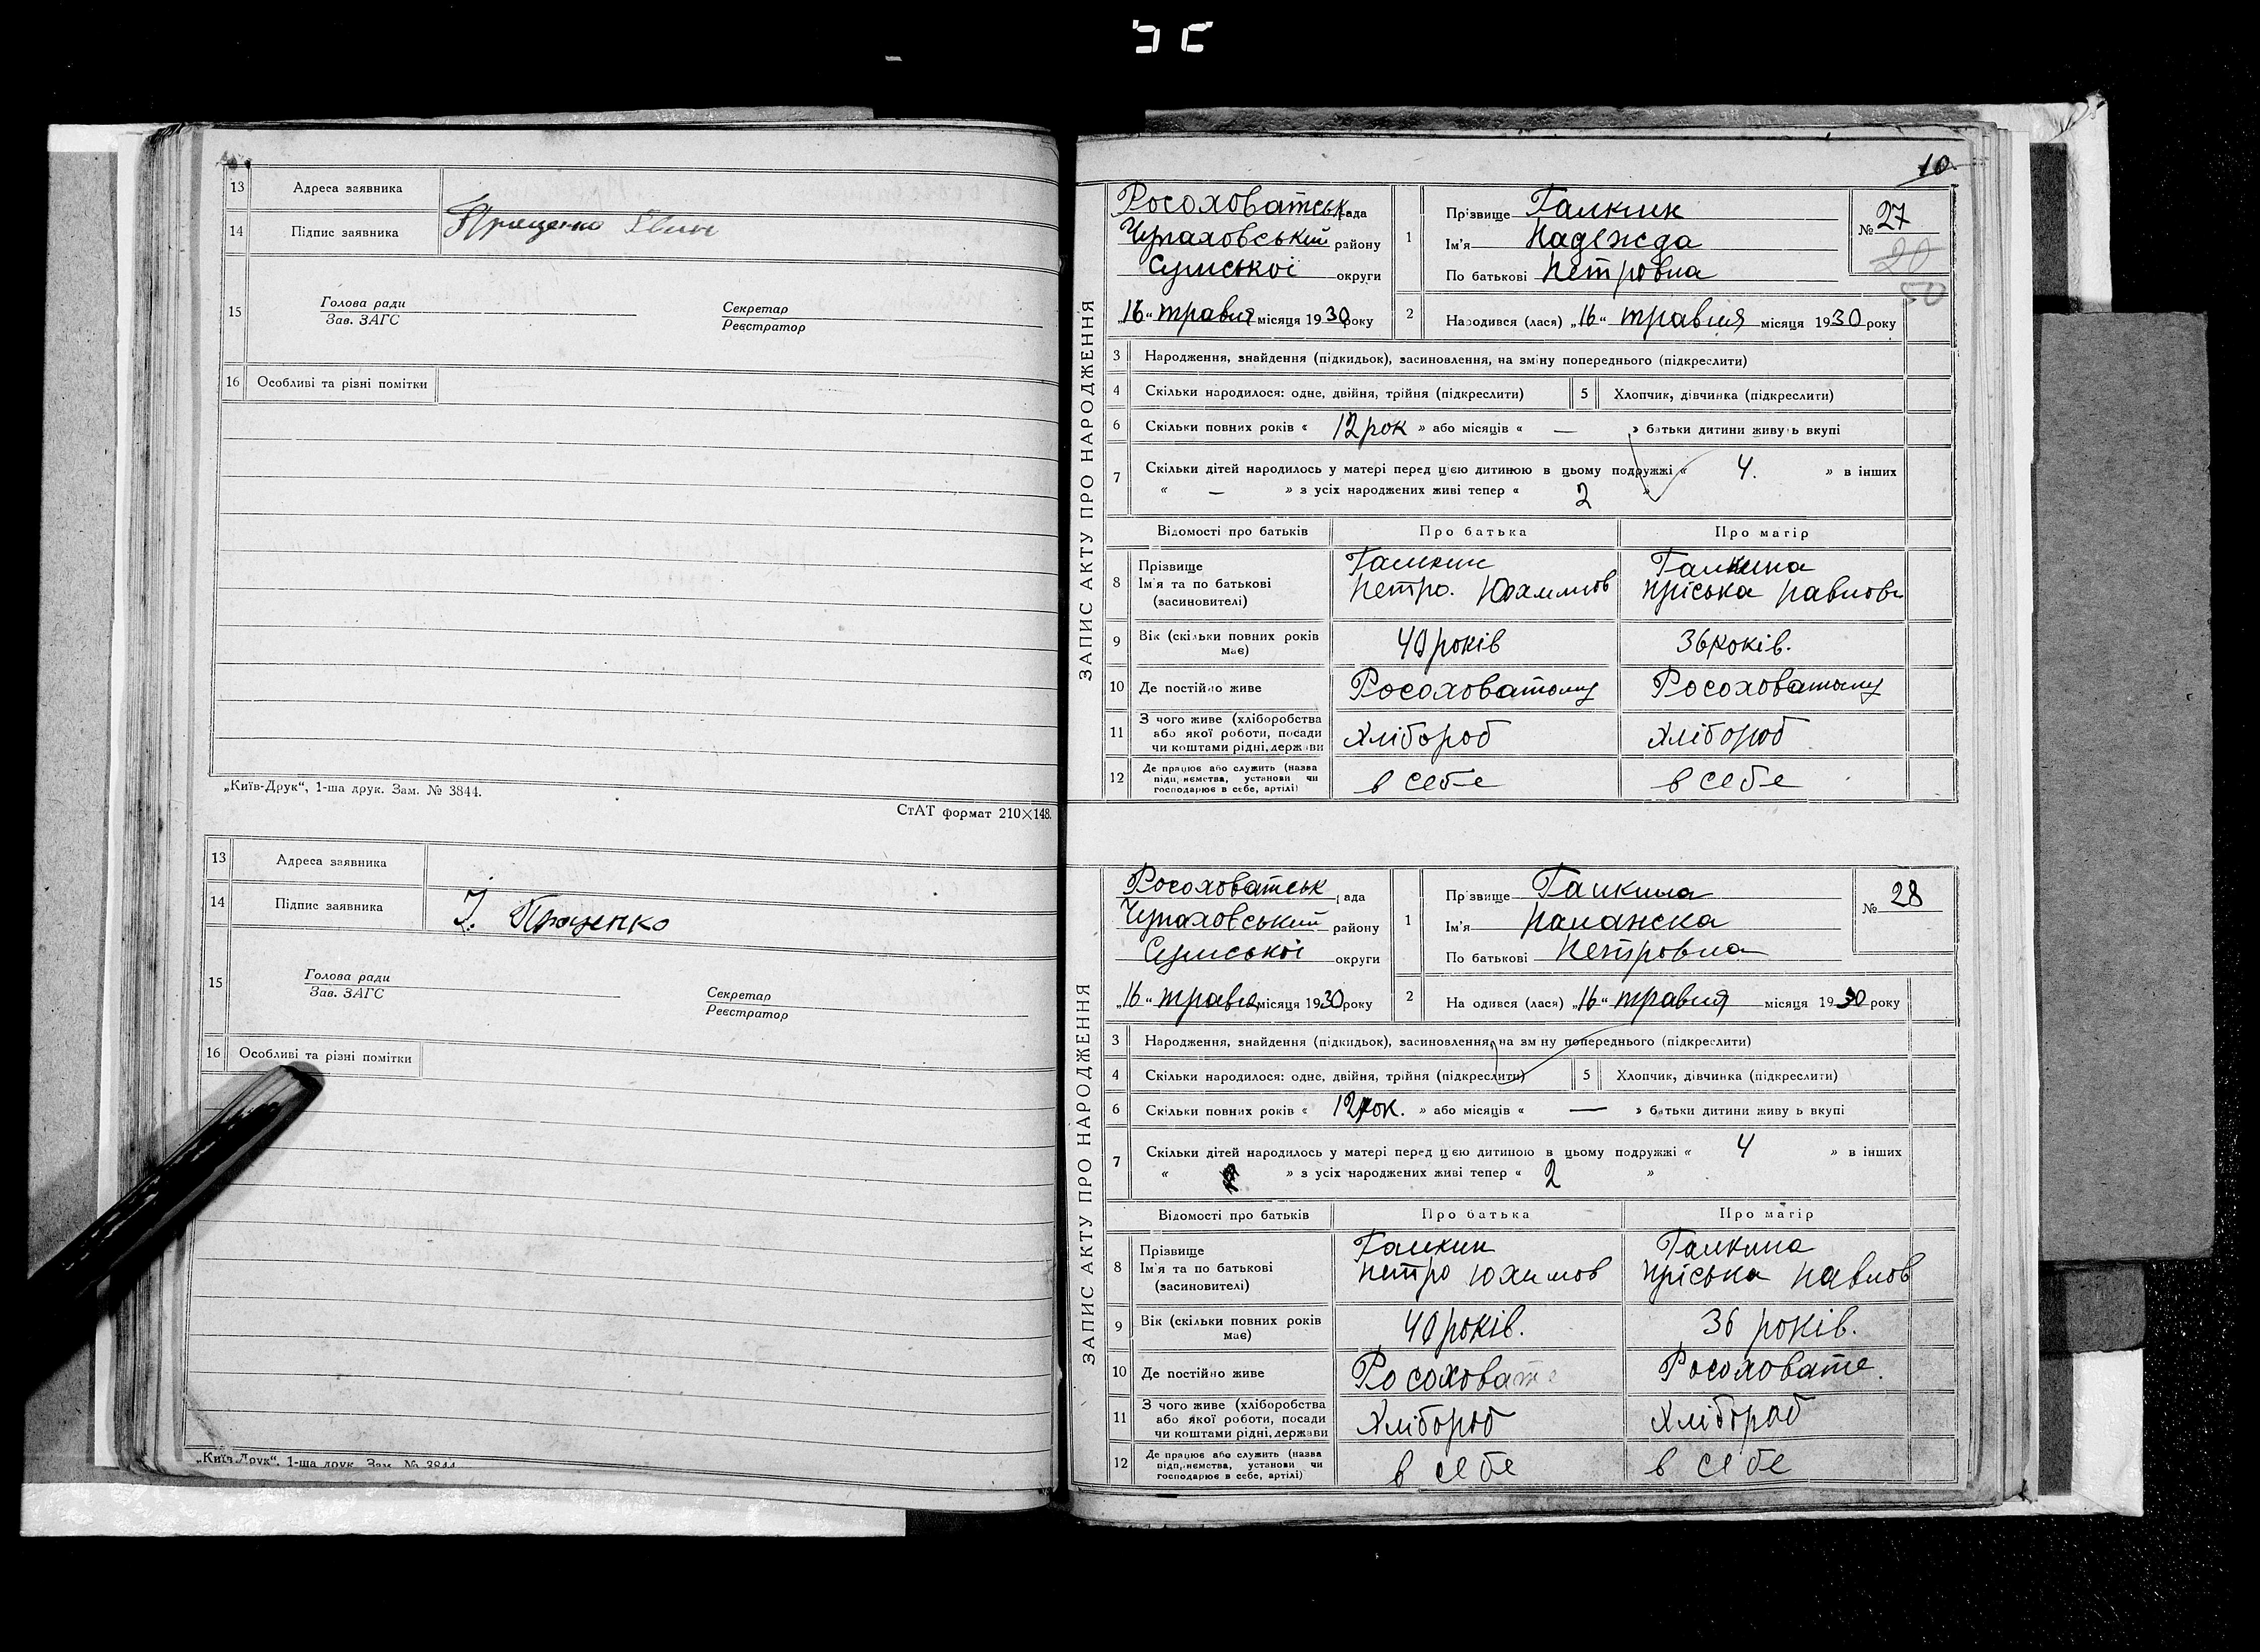 13 Адреса заявника
14 Підпис заявника Проценко
15 Голова ради Секретар
Зав. ЗАГС Реєстратор
16 Особливі та різні помітки
„Київ-Друк“, 1-ша друк. Зам. № 3844.
СтАТ формат 210×148.
13 Адреса заявника
14 Підпис заявника І. Проценко
15 Голова ради Секретар
Зав. ЗАГС Реєстратор
16 Особливі та різні помітки
„Київ-Друк“, 1-ша друк. Зам. № 3844
10
ЗАПИС АКТУ ПРО НАРОДЖЕННЯ
Росоховатськ рада
Чупаховський району
Сумської округи
„16“ травня місяця 1930 року
1 Прізвище Галкин
Ім'я Надежда
По батькові Петровна
№ 27
20
50
2 Народився (лася) „16“ травня місяця 1930 року
3 Народження, знайдення (підкидьок), засиновлення, на зміну попереднього (підкреслити)
4 Скільки народилося: одне, двійня, трійня (підкреслити) 5 Хлопчик, дівчинка (підкреслити)
6 Скільки повних років « 12 рок » або місяців « — » батьки дитини живуть вкупі
7 Скільки дітей народилось у матері перед цією дитиною в цьому подружжі « 4. » в інших
« — » з усіх народжених живі тепер « 2 »
Відомості про батьків Про батька Про матір
8 Прізвище Галкин Галкина
Ім'я та по батькові Петро. Юхимов Пріська Павлов
(засновителі)
9 Вік (скільки повних років має) 40 років 36 років.
10 Де постійно живе Росоховатому Росоховатому
11 З чого живе (хліборобства або якої роботи, посади чи коштами рідні, держави Хлібороб Хлібороб
12 Де працює або служить (назва підприємства, установи чи господарює в себе, артілі) в себе в себе
ЗАПИС АКТУ ПРО НАРОДЖЕННЯ
Росоховатськ рада
Чупаховський району
Сумської округи
„16“ травня місяця 1930 року
1 Прізвище Галкина
Ім'я Паланска
По батькові Петровна
№ 28
2 Народився (лася) „16“ травня місяця 1930 року
3 Народження, знайдення (підкидьок), засиновлення, на зміну попереднього (підкреслити)
4 Скільки народилося: одне, двійня, трійня (підкреслити) 5 Хлопчик, дівчинка (підкреслити)
6 Скільки повних років « 12 рок. » або місяців « — » батьки дитини живуть вкупі
7 Скільки дітей народилось у матері перед цією дитиною в цьому подружжі « 4 » в інших
« » з усіх народжених живі тепер « 2 »
Відомості про батьків Про батька Про матір
8 Прізвище Галкин Галкина
Ім'я та по батькові Петро Юхимов Пріська Павлов
(засиновителі)
9 Вік (скільки повних років має) 40 років. 36 років.
10 Де постійно живе Росоховате Росоховате.
11 З чого живе (хліборобства або якої роботи, посади чи коштами рідні, держави Хлібороб Хлібороб
12 Де працює або служить (назва підприємства, установи чи господарює в себе, артілі) в себе в себе